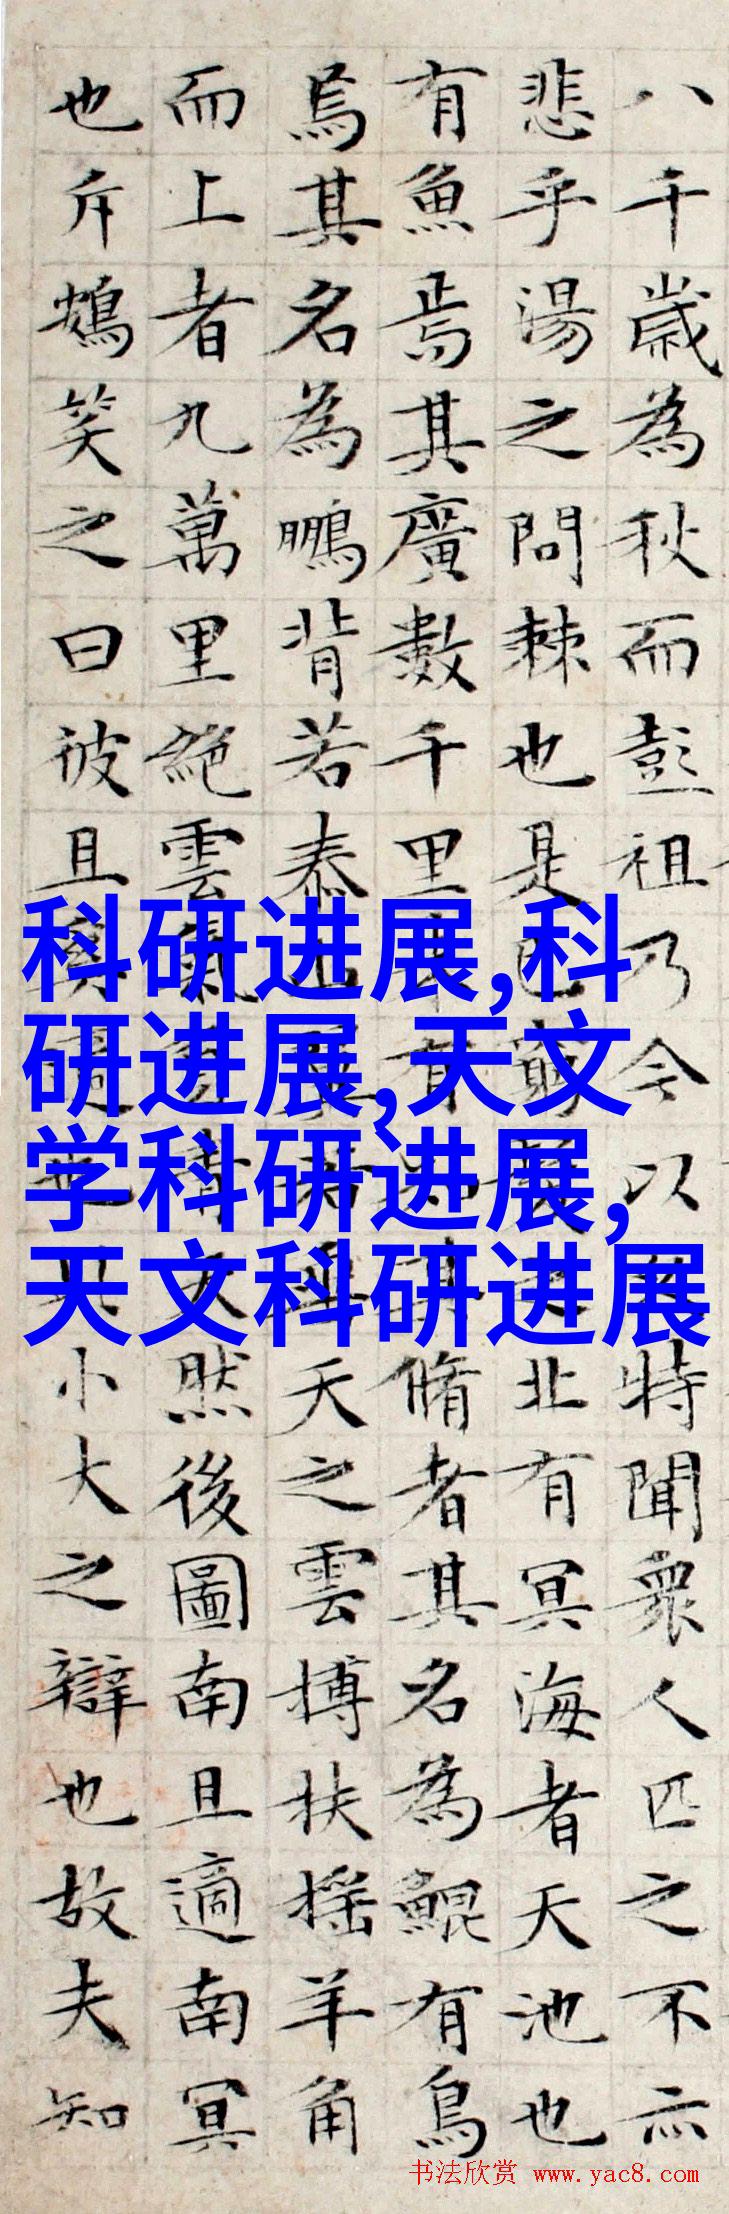 八千歲為秋而彭祖乃今以特聞衆人匹之不亦
悲乎湯之問棘也是已窮之北有冥海者天池也
有魚焉其廣數千里未有知其脩者其名為鯤有鳥
焉其名為鵬背若泰山翼若垂天之雲搏扶搖羊角
而上者九萬里絕雲氣負青天然後圖南且適南冥
也斥鴳笑之曰彼且奚適也此小大之辯也故夫知
科研进展,科
研进展,天文
学科研进展,
天文科研进展
书法欣赏 www.yac8.com